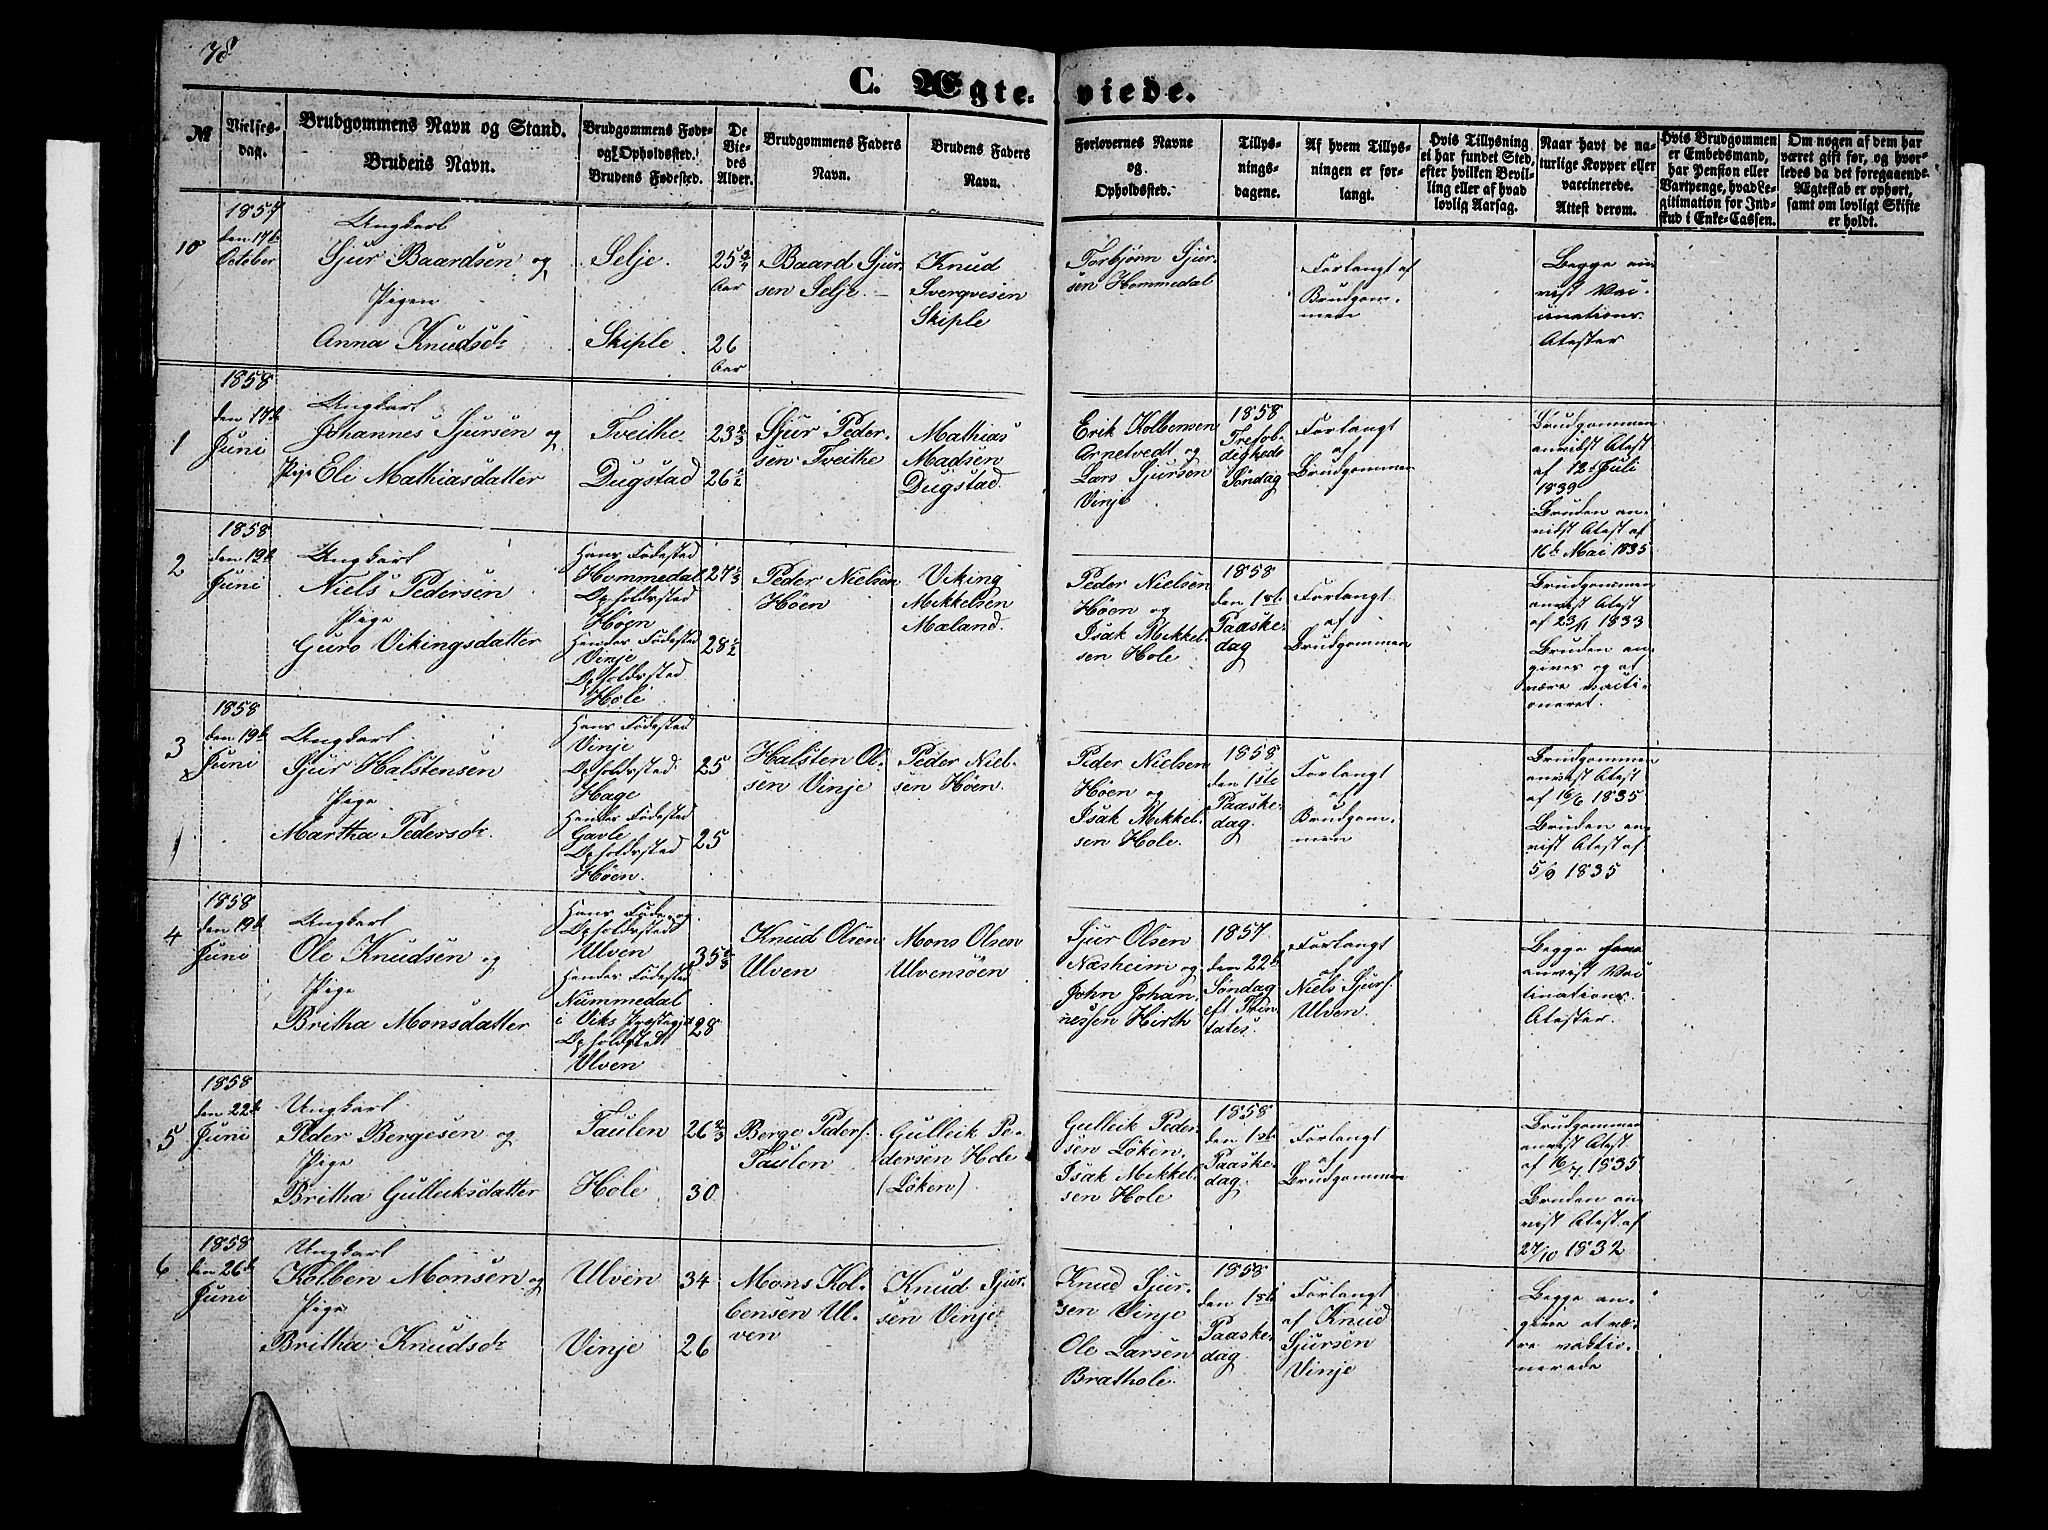 78
C. Ægte- viede.
№
Vielses-
dag.
Brudgommens Navn og Stand.
Brudens Navn.
Brudgommens Føde-
og Opholdssted.
Brudens Fødested.
De
Vie-
des
Alder.
Brudgommens Faders
Navn.
Brudens Faders
Navn.
Forlovernes Navne
og
Opholdssted.
Tillys-
nings-
dagene.
Af hvem Tillys-
ningen er for-
langt.
Hvis Tillysning
ei har fundet Sted,
efter hvilken Bevil-
ling eller af hvad
lovlig Aarsag.
Naar havt de na-
turlige Kopper eller
vaccinerede.
Attest derom.
Hvis Brudgommen
er Embedsmand,
har Pension eller
Vartpenge, hvad Le-
gitimation for Ind-
skud i Enke-Cassen.
Om nogen af dem har
været gift før, og hvor-
ledes da det foregaaende
Ægteskab er ophørt,
samt om lovligt Skifte
er holdt.
10
1857
den 17de
October
Ungkarl
Sjur Baardsen og
Pigen
Anna Knudsdr
Selje
Skiple
25 3/4
Aar
26
Aar
Baard Sjur-
sen Selje
Knud
Sverqvesen
Skiple
Torbjørn Sjur-
sen Hommedal
Forlangt af
Brudgom-
men
Begge an-
vist Vac-
inations
Atester
1
1858
den 17de
Juni
Ungkarl
Johannes Sjursen og
Pige Eli Mathiasdatter
Tveithe
Dugstad
23 2/3
26 1/2
Sjur Peder-
sen Tveithe
Mathias
Madsen
Dugstad
Erik Kolbensen
Arnetvedt og
Lars Sjursen
Vinje
1858
Trefol-
digheds
Søndag
Forlangt
af
Brudgommen
Brudgommen
anvidst Atest
af 12te Juli
1839
Bruden an-
vidst Atest af
16de Mai 1835
2
1858
den 19de
Juni
Ungkarl
Niels Pedersen
Pige
Guro Vikingsdatter
Hans Fødested
Hommedal
Opholdssted
Høen
Hendes Fødested
Vinje
Opholdssted
Hole
27 1/3
28 1/2
Peder Nielsen
Høen
Viking
Mikkelsen
Mæland
Peder Nielsen
Høen og
Isak Mikkel-
sen Hole
1858
den 1ste
Paaske-
dag
Forlangt
af
Brudgommen
Brudgommen
anvist Atest
af 23/11 1833
Bruden an-
gives og at
være vacti-
oneret.
3
1858
den 19de
Juni
Ungkarl
Sjur Halstensen
Pige
Martha Pedersdr
Hans Fødested
Vinje
Opholdssted
Hage
Hendes Fødested
Gavle
Opholdssted
Høen
25
25
Halsten Ol-
sen Vinje
Peder Niel-
sen Høen
Peder Nielsen
Høen og
Isak Mikkel-
sen Hole
1858
den 1ste
Paaske-
dag
Forlangt
af
Brudgom-
men
Brudgommen
anvist Atest
af 16/6 1835
Bruden an-
vist Atest af
5/9 1835
4
1858
den 19de
Juni
Ungkarl
Ole Knudsen og
Pige
Britha Monsdatter
Hans Føde- og
Opholdssted
Ulven
Hendes Fødested
Nummedal
i Viks Præstegj
Opholdssted
Ulven
35 2/3
28
Knud Olsen
Ulven
Mons Olsen
Ulvensøen
Sjur Olsen
Næsheim og
John Johan-
nessen Hirth
1857
den 22de
Søndag
eft Trin-
tates
Forlangt
af
Niels Sjurs.
Ulven
Begge
anvist Vac-
tinations
Atester
5
1858
den 22de
Juni
Ungkarl
Peder Bergesen og
Pige
Britha Gulleiksdatter
Taulen
Hole
26 2/3
30
Berge Peders.
Taulen
Gulleik Pe-
dersen Hole
(Løken)
Gulleik Peder-
sen Løken
Isak Mikkel-
sen Hole
1858
den 1ste
Paaske-
dag
Forlangt
af
Brudgommen
Brudgommen
anvist Atest
af 16/7 1835
Bruden an-
vist Atest af
27/10 1832
6
1858
den 26de
Juni
Ungkarl
Kolben Monsen og
Pige
Britha Knudsdr
Ulven
Vinje
34
26
Mons Kol-
bensen Ul-
ven
Knud Sjur-
sen Vinje
Knud Sjur-
sen Vinje
Ole Larsen
Brathole
1858
den 1ste
Paaske-
dag
Forlangt
af Knud
Sjursen
Vinje
Begge an-
give at væ-
re vactio-
nerede